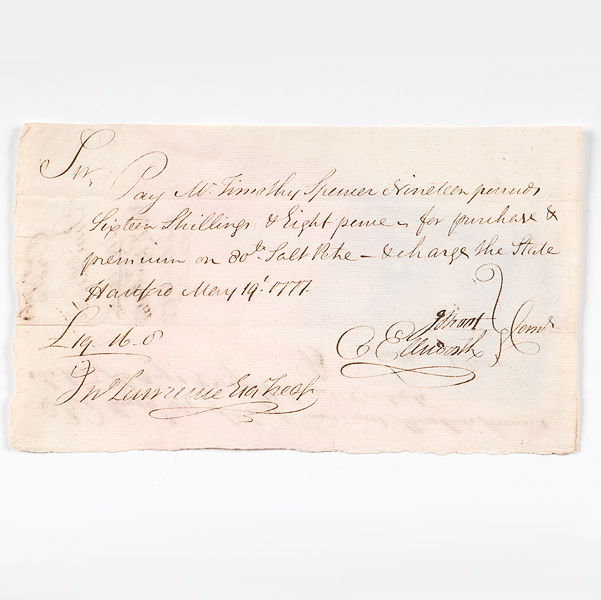 Sir,
Pay Mr Timothy Spencer Nineteen pounds
Sixteen Shillings & Eight pence for purchase &
premium on 80lb Salt Petre - & charge the State
Hartford May 19t 1777.
£19. 16. 8
Ellsworth } Comte
Jno Lawrence Esq Treasr